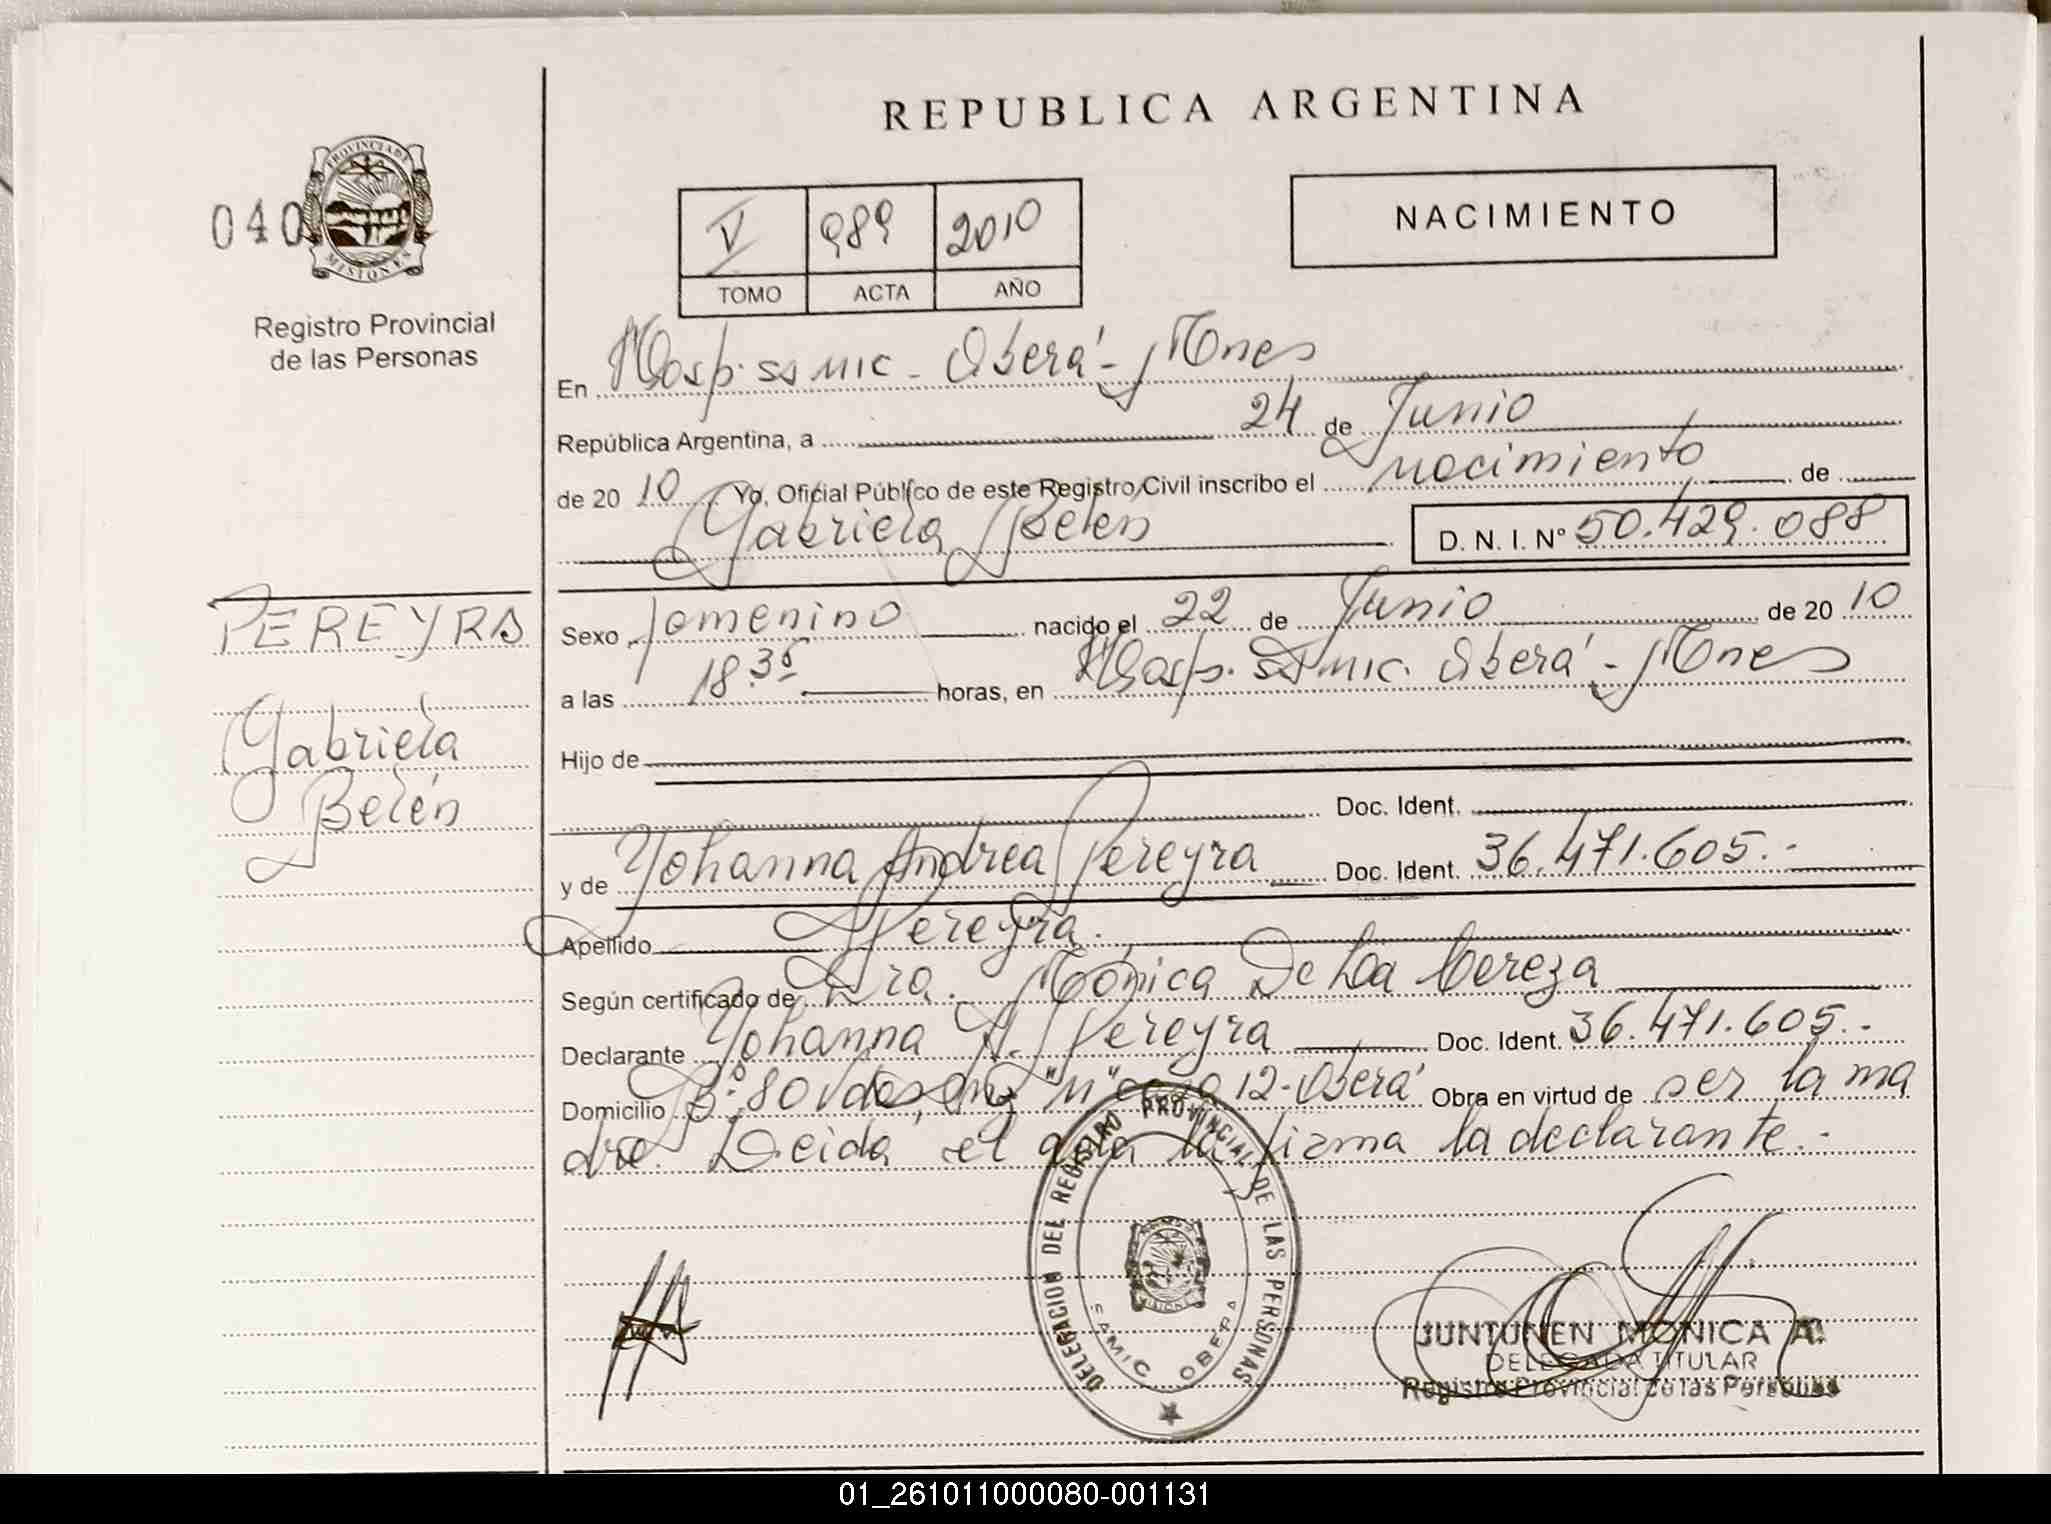 REPUBLICA ARGENTINA
040
PROVINCIA DE
MISIONES
Registro Provincial
de las Personas
V 989 2010
TOMO ACTA AÑO
NACIMIENTO
En Hosp. SAMIC - Oberá - Mnes
República Argentina, a 24 de Junio
de 20 10 Yo, Oficial Público de este Registro Civil inscribo el nacimiento de
Gabriela Belen D. N. I. N° 50.429.088
PEREYRA
Gabriela
Belén
Sexo femenino nacido el 22 de Junio de 20 10
a las 18.35 horas, en Hosp. SAMIC. Oberá - Mnes
Hijo de
Doc. Ident.
y de Yohanna Andrea Pereyra Doc. Ident. 36.471.605.-
Apellido Pereyra.
Según certificado de Dra. Mónica De La
Declarante Yohanna A. Pereyra Doc. Ident. 36.471.605.-
Domicilio B° 80 Vdas, Mz "M" casa 12 - Oberá Obra en virtud de ser la ma
dre. Leida el acta la firma la declarante.-
DELEGACION DEL REGISTRO PROVINCIAL DE LAS PERSONAS
SAMIC OBERA
JUNTUNEN MONICA A.
DELEGADA TITULAR
Registro Provincial de las Personas
01_261011000080-001131